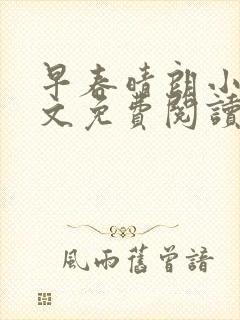 早春晴朗小
文免費閱讀
風雨舊曾諳